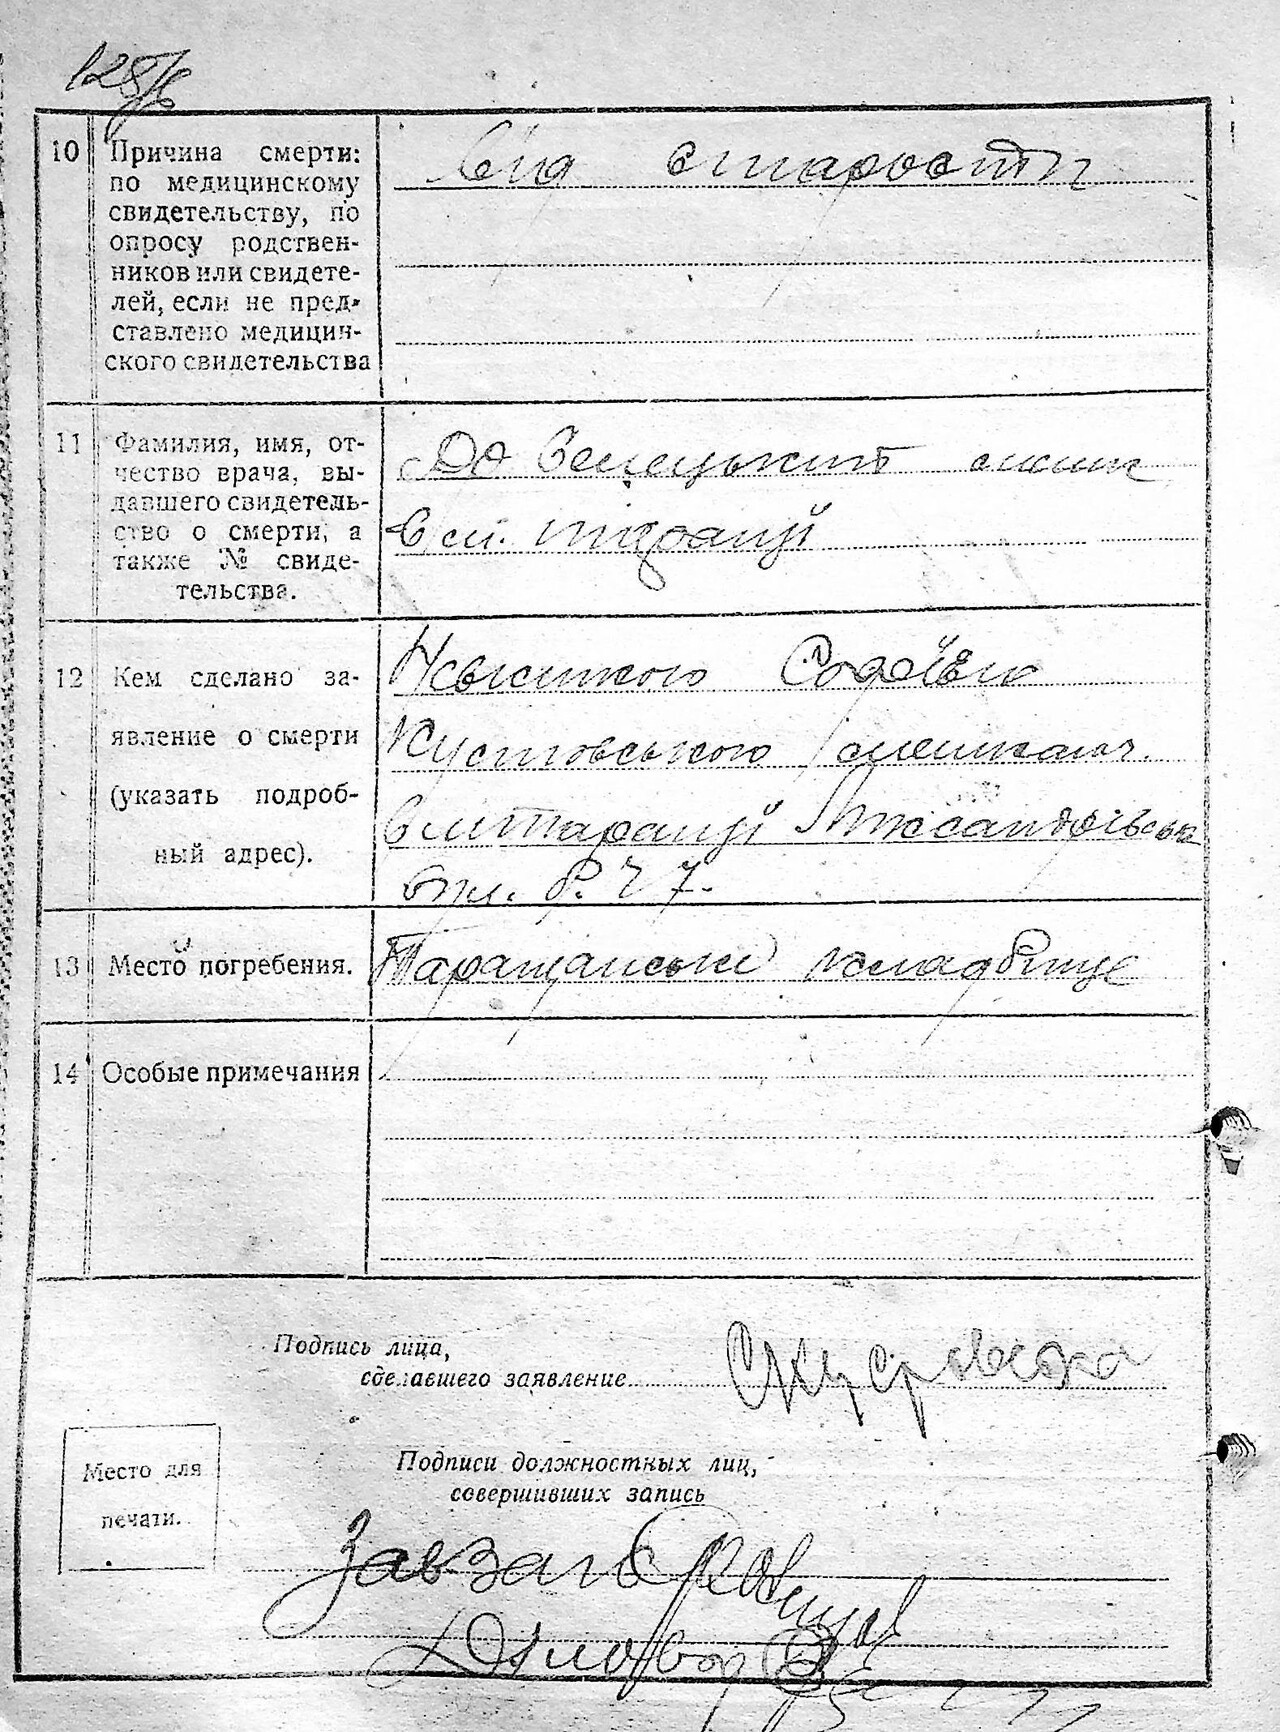 10 Причина смерти:
по медицинскому
свидетельству, по
опросу родствен-
ников или свидете-
лей, если не пред-
ставлено медицин-
ского свидетельства
Від старости
11 Фамилия, имя, от-
чество врача, вы-
давшего свидетель-
ство о смерти, а
также № свиде-
тельства.
в м. Таращі
12 Кем сделано за-
явление о смерти
(указать подроб-
ный адрес).
Кустовською мешкаюч.
в м Таращі
вул. 7.
13 Место погребения.
Таращанське кладбіще
14 Особые примечания
Подпись лица,
сделавшего заявление
Место для
печати.
Подписи должностных лиц,
совершивших запись
Завзагс
Діловод